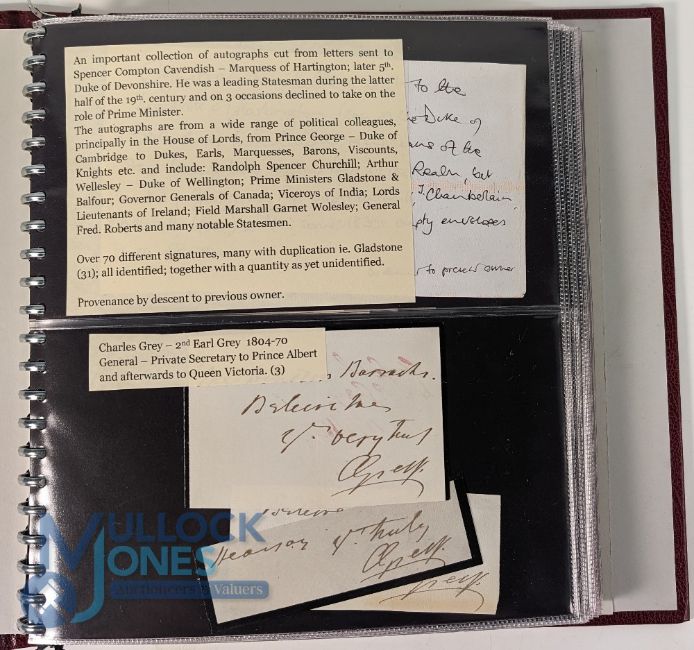 An important collection of autographs cut from letters sent to
Spencer Compton Cavendish – Marquess of Hartington; later 5th.
Duke of Devonshire. He was a leading Statesman during the latter
half of the 19th. century and on 3 occasions declined to take on the
role of Prime Minister.
The autographs are from a wide range of political colleagues,
principally in the House of Lords, from Prince George – Duke of
Cambridge to Dukes, Earls, Marquesses, Barons, Viscounts,
Knights etc. and include: Randolph Spencer Churchill; Arthur
Wellesley – Duke of Wellington; Prime Ministers Gladstone &
Balfour; Governor Generals of Canada; Viceroys of India; Lords
Lieutenants of Ireland; Field Marshall Garnet Wolesley; General
Fred. Roberts and many notable Statesmen.
Over 70 different signatures, many with duplication ie. Gladstone
(31); all identified; together with a quantity as yet unidentified.
Provenance by descent to previous owner.
To the
Duke of
of the
Realm but
J. Chamberlain
envelopes
to previous owner
Charles Grey – 2nd Earl Grey 1804-70
General – Private Secretary to Prince Albert
and afterwards to Queen Victoria. (3)
Barracks.
Believe me
Yr very truly
CGrey.
Yr truly
CGrey.
Grey.
MULLOCK
JONES
Auctioneers & Valuers